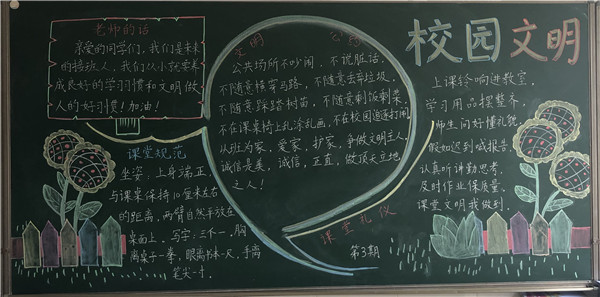 老师的话
亲爱的同学们，我们是未来
的接班人，我们从小就需养
成良好的学习惯和文明做
人的好习惯！加油！
课堂规范
坐姿：上身端正，
与课桌保持10厘米左右
的距离，两臂自然平放在
桌面上。写字：三个一，胸
离桌子一拳，眼离书本一尺，手离
笔尖一寸。
文明公约
公共场所不吵闹，不说脏话，
不随意横穿马路，不随意丢弃垃圾，
不随意踩踏树苗，不随意剩饭剩菜，
不在课桌椅上乱涂乱画，不在校园追逐打闹，
从班为家，爱家，护家，争做文明主人，
诚信是美，诚信，正直，做顶天立地
之人！
课堂礼仪
第3期
校园文明
上课铃响进教室，
学习用品摆整齐，
师生问好懂礼貌，
假如迟到喊报告，
认真听讲勤思考，
及时作业保质量，
课堂文明我做到。